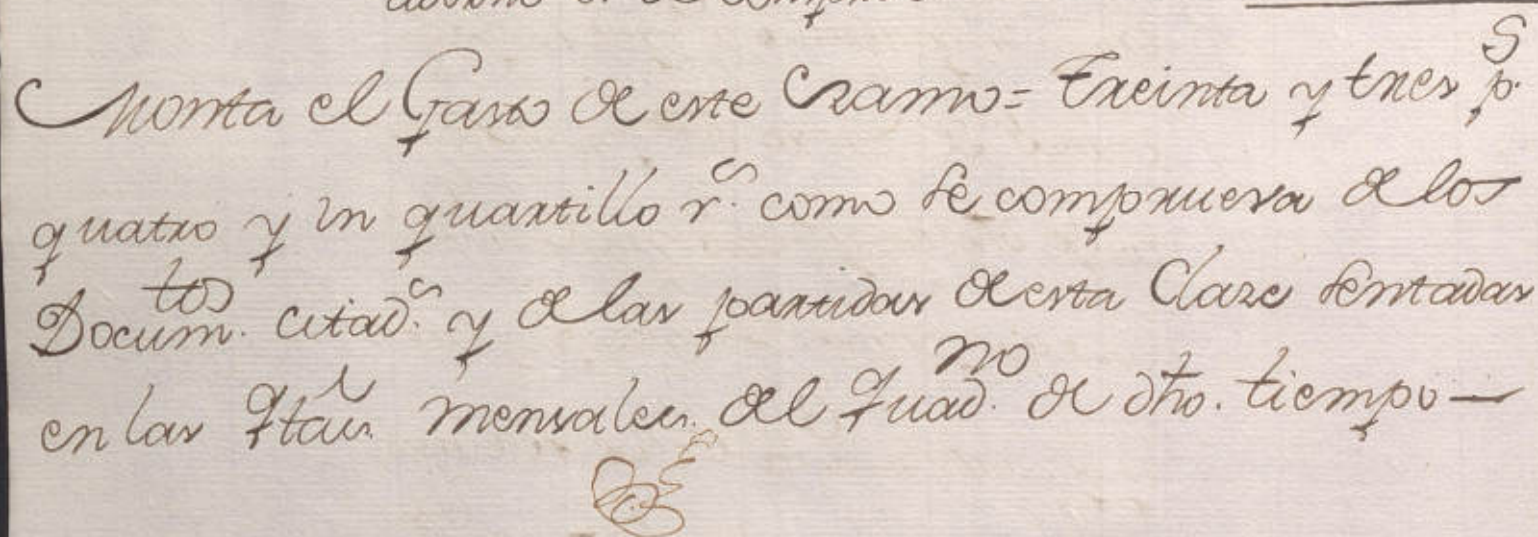 Monta el Gasto de este Ramo = Treinta y tres p.s
quatro y un quartillo r.s como se comprueva de los
Docum.tos citad.s y de las partidas de esta Claze sentadas
en las qtas mensales del quad.no de dho. tiempo —